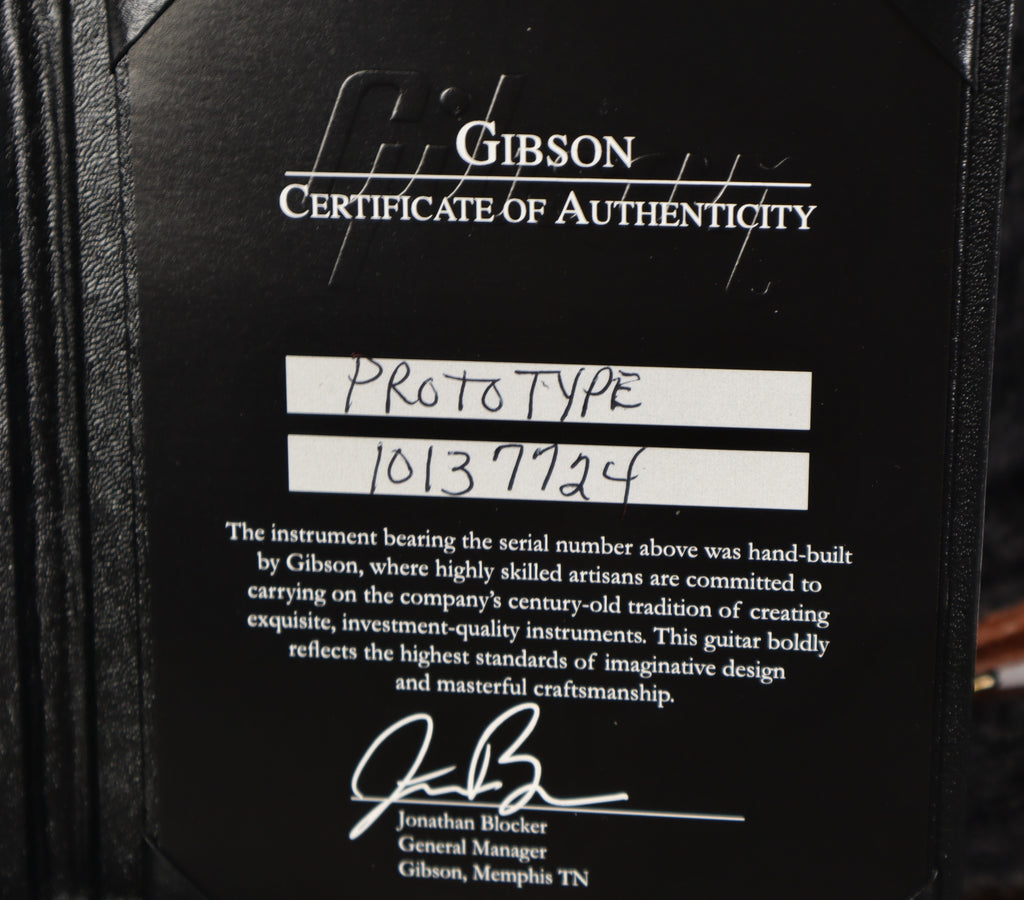 Gibson
GIBSON
CERTIFICATE OF AUTHENTICITY
PROTOTYPE
10137724
The instrument bearing the serial number above was hand-built
by Gibson, where highly skilled artisans are committed to
carrying on the company's century-old tradition of creating
exquisite, investment-quality instruments. This guitar boldly
reflects the highest standards of imaginative design
and masterful craftsmanship.
Jonathan Blocker
General Manager
Gibson, Memphis TN